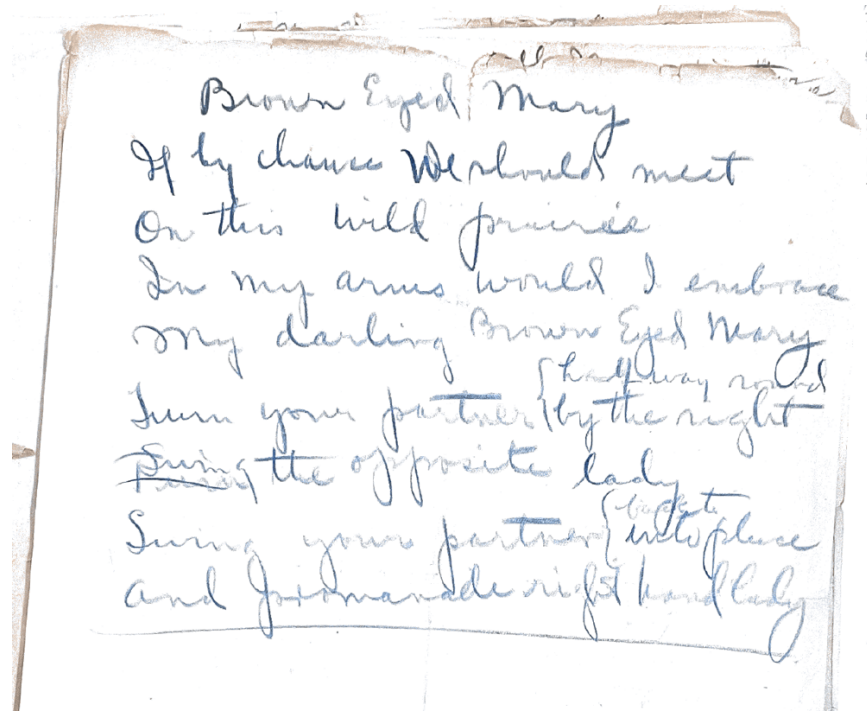 Brown Eyed Mary
If by chance We should meet
On this wild prairie
In my arms would I embrace
My darling Brown Eyed Mary
half way round
Turn your partner by the right
Swing the opposite lady
back to
Swing your partner into place
and promanade right hand lady